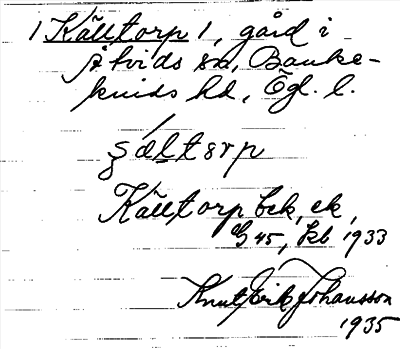 1 Källtorp 1, gård i
Åtvids sn, Banke-
kinds hd, Ögl. l.
Källtorp bek, ek,
45, kb 1933
Knut Erik Johansson
1935